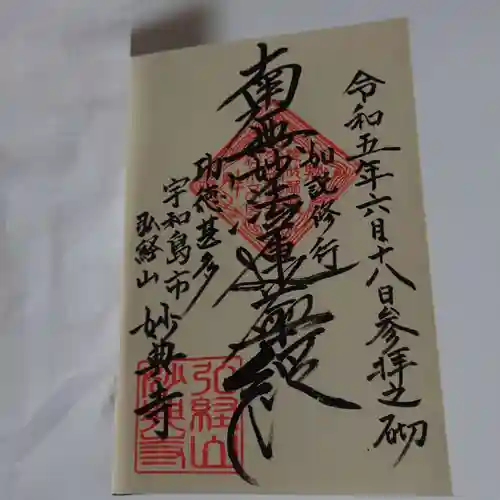 令和五年六月十八日参拝之砌
如説修行
南無妙法蓮華経
功徳甚多
宇和島市
弘経山
妙典寺
弘経山
妙典寺